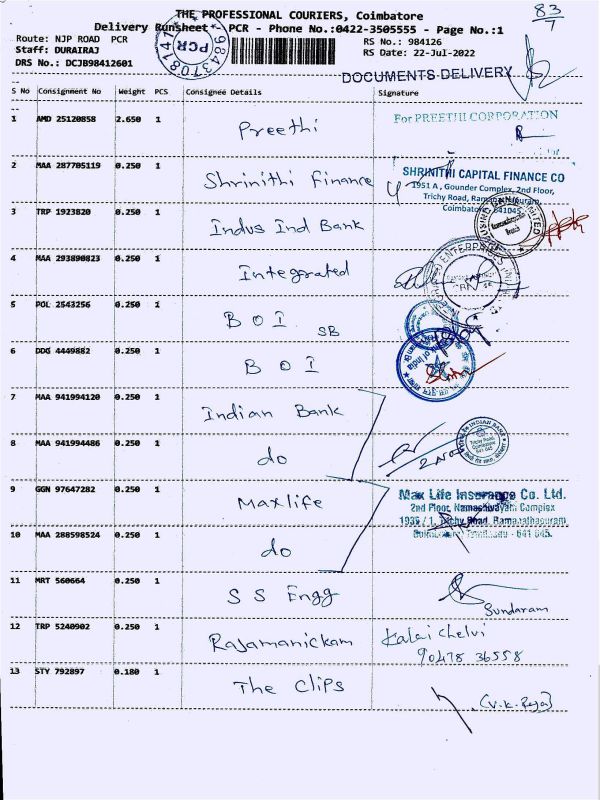 83
7
THE PROFESSIONAL COURIERS, Coimbatore
Delivery Runsheet - PCR - Phone No.:0422-3505555 - Page No.:1
Route: NJP ROAD PCR
Staff: DURAIRAJ
DRS No.: DCJB98412601
PCR
RS No.: 984126
RS Date: 22-Jul-2022
DOCUMENTS DELIVERY
S No Consignment No Weight PCS Consignee Details Signature
1 AMD 25120858 2.650 1 Preethi For PREETHI CORPORATION
2 MAA 287705119 0.250 1 Shrinithi Finance SHRINITHI CAPITAL FINANCE CO
1951 A, Gounder Complex, 2nd Floor,
Trichy Road, Ramanathapuram,
Coimbatore 641045
3 TRP 1923820 0.250 1 Indus Ind Bank
4 MAA 293890823 0.250 1 Integrated
5 POL 2543256 0.250 1 BOI SB
6 DDG 4449882 0.250 1 BOI
7 MAA 941994120 0.250 1 Indian Bank
8 MAA 941994486 0.250 1 do
9 GGN 97647282 0.250 1 Maxlife Max Life Insurance Co. Ltd.
2nd Floor, Namashivayam Complex
1936 / 1, Trichy Road, Ramanathapuram
Coimbatore Tamilnadu - 641 045.
10 MAA 288598524 0.250 1 do
11 MRT 560664 0.250 1 S S Engg Sundaram
12 TRP 5240902 0.250 1 Rajamanickam Kalai Chelvi
90478 36558
13 STY 792897 0.180 1 The Clips (V.K. Raja)